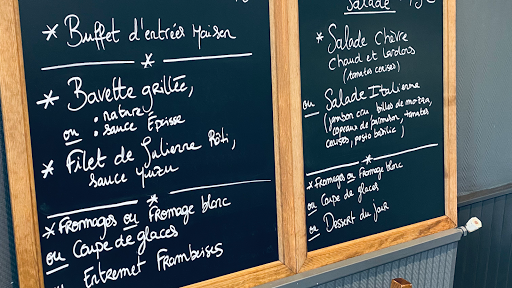 * Buffet d'entrées Maison
*
* Bavette grillée,
: nature
ou : sauce Épisse
* Filet de Julienne Rôti,
sauce yuzu
*
* Fromages ou Fromage blanc
ou Coupe de glaces
ou Entremet Framboises
Salade
* Salade Chèvre
Chaud et lardons
(tomates cerises)
ou Salade Italienne
(jambon cru, billes de mozza,
copeaux de parmesan, tomates
cerises, pesto basilic)
*
* Fromages ou Fromage blanc
ou Coupe de glaces
ou Dessert du jour